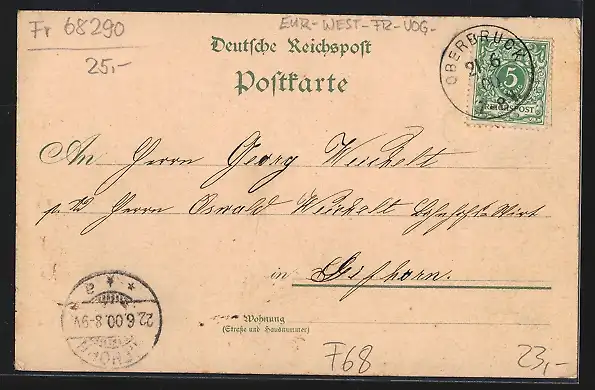 Fr 68290
EUR-WEST-FR-VOG-
25,-
Deutsche Reichspost
Postkarte
OBERBRUCK
21 6
5
REICHSPOST
An Herrn Georg Weichelt
p. Ad Herrn Oswald Weichelt Bahnhofs-Wirt
in Gifhorn.
22.6.00.8-9V
GIFHORN
Wohnung
(Straße und Hausnummer)
F68
23,-